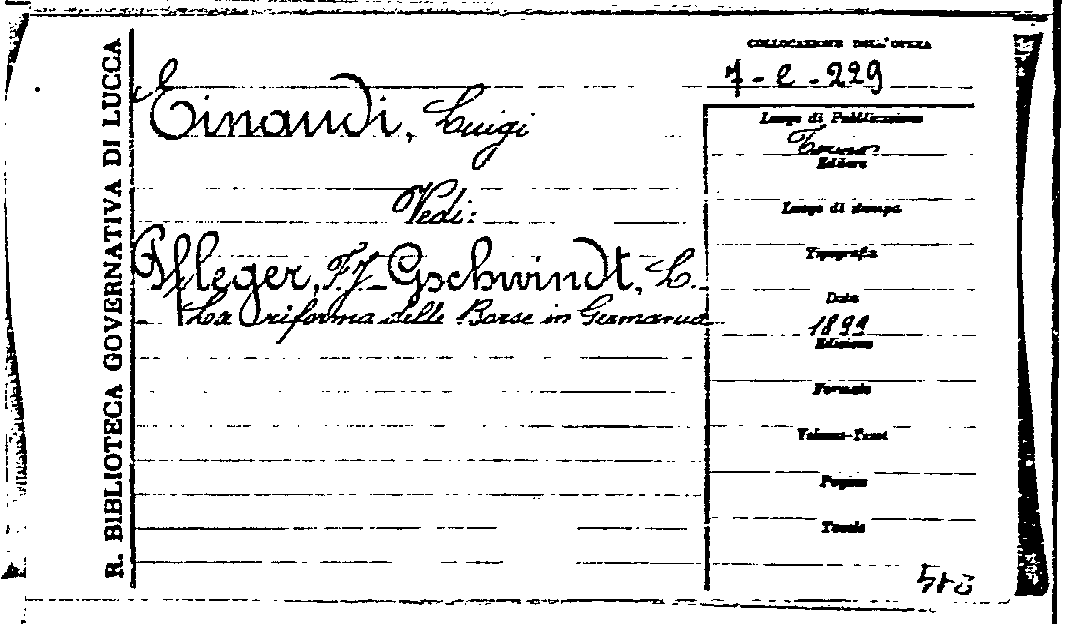 R. BIBLIOTECA GOVERNATIVA DI LUCCA
COLLOCAZIONE DELL'OPERA
7-e-229
Einaudi, Luigi
Vedi:
Pfleger, F.J. - Gschwindt, L. -
- La riforma delle Borse in Germania
Luogo di Pubblicazione
Torino
Editore
Luogo di stampa
Tipografia
Data
1899
Edizione
Formato
Volume-Tomi
Pagine
Tavole